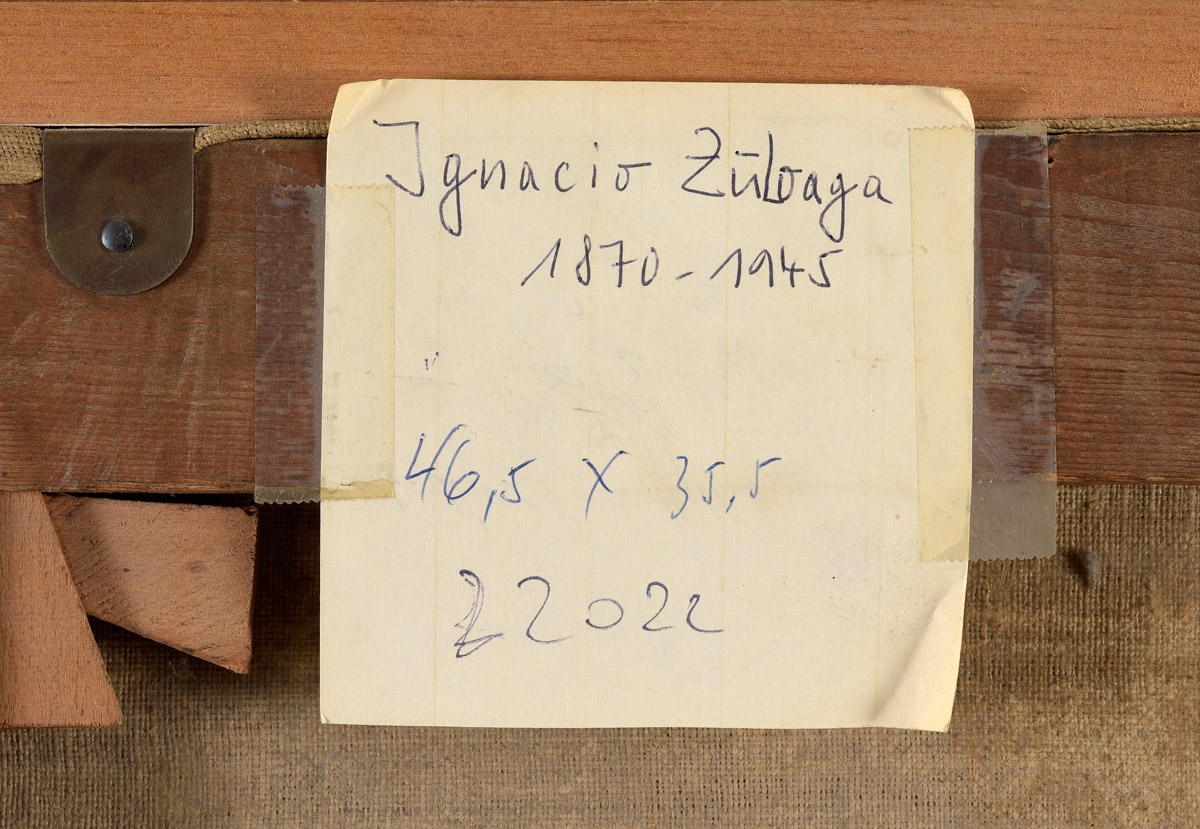 Ignacio Zūloaga
1870-1945
46,5 x 35,5
Z 2022